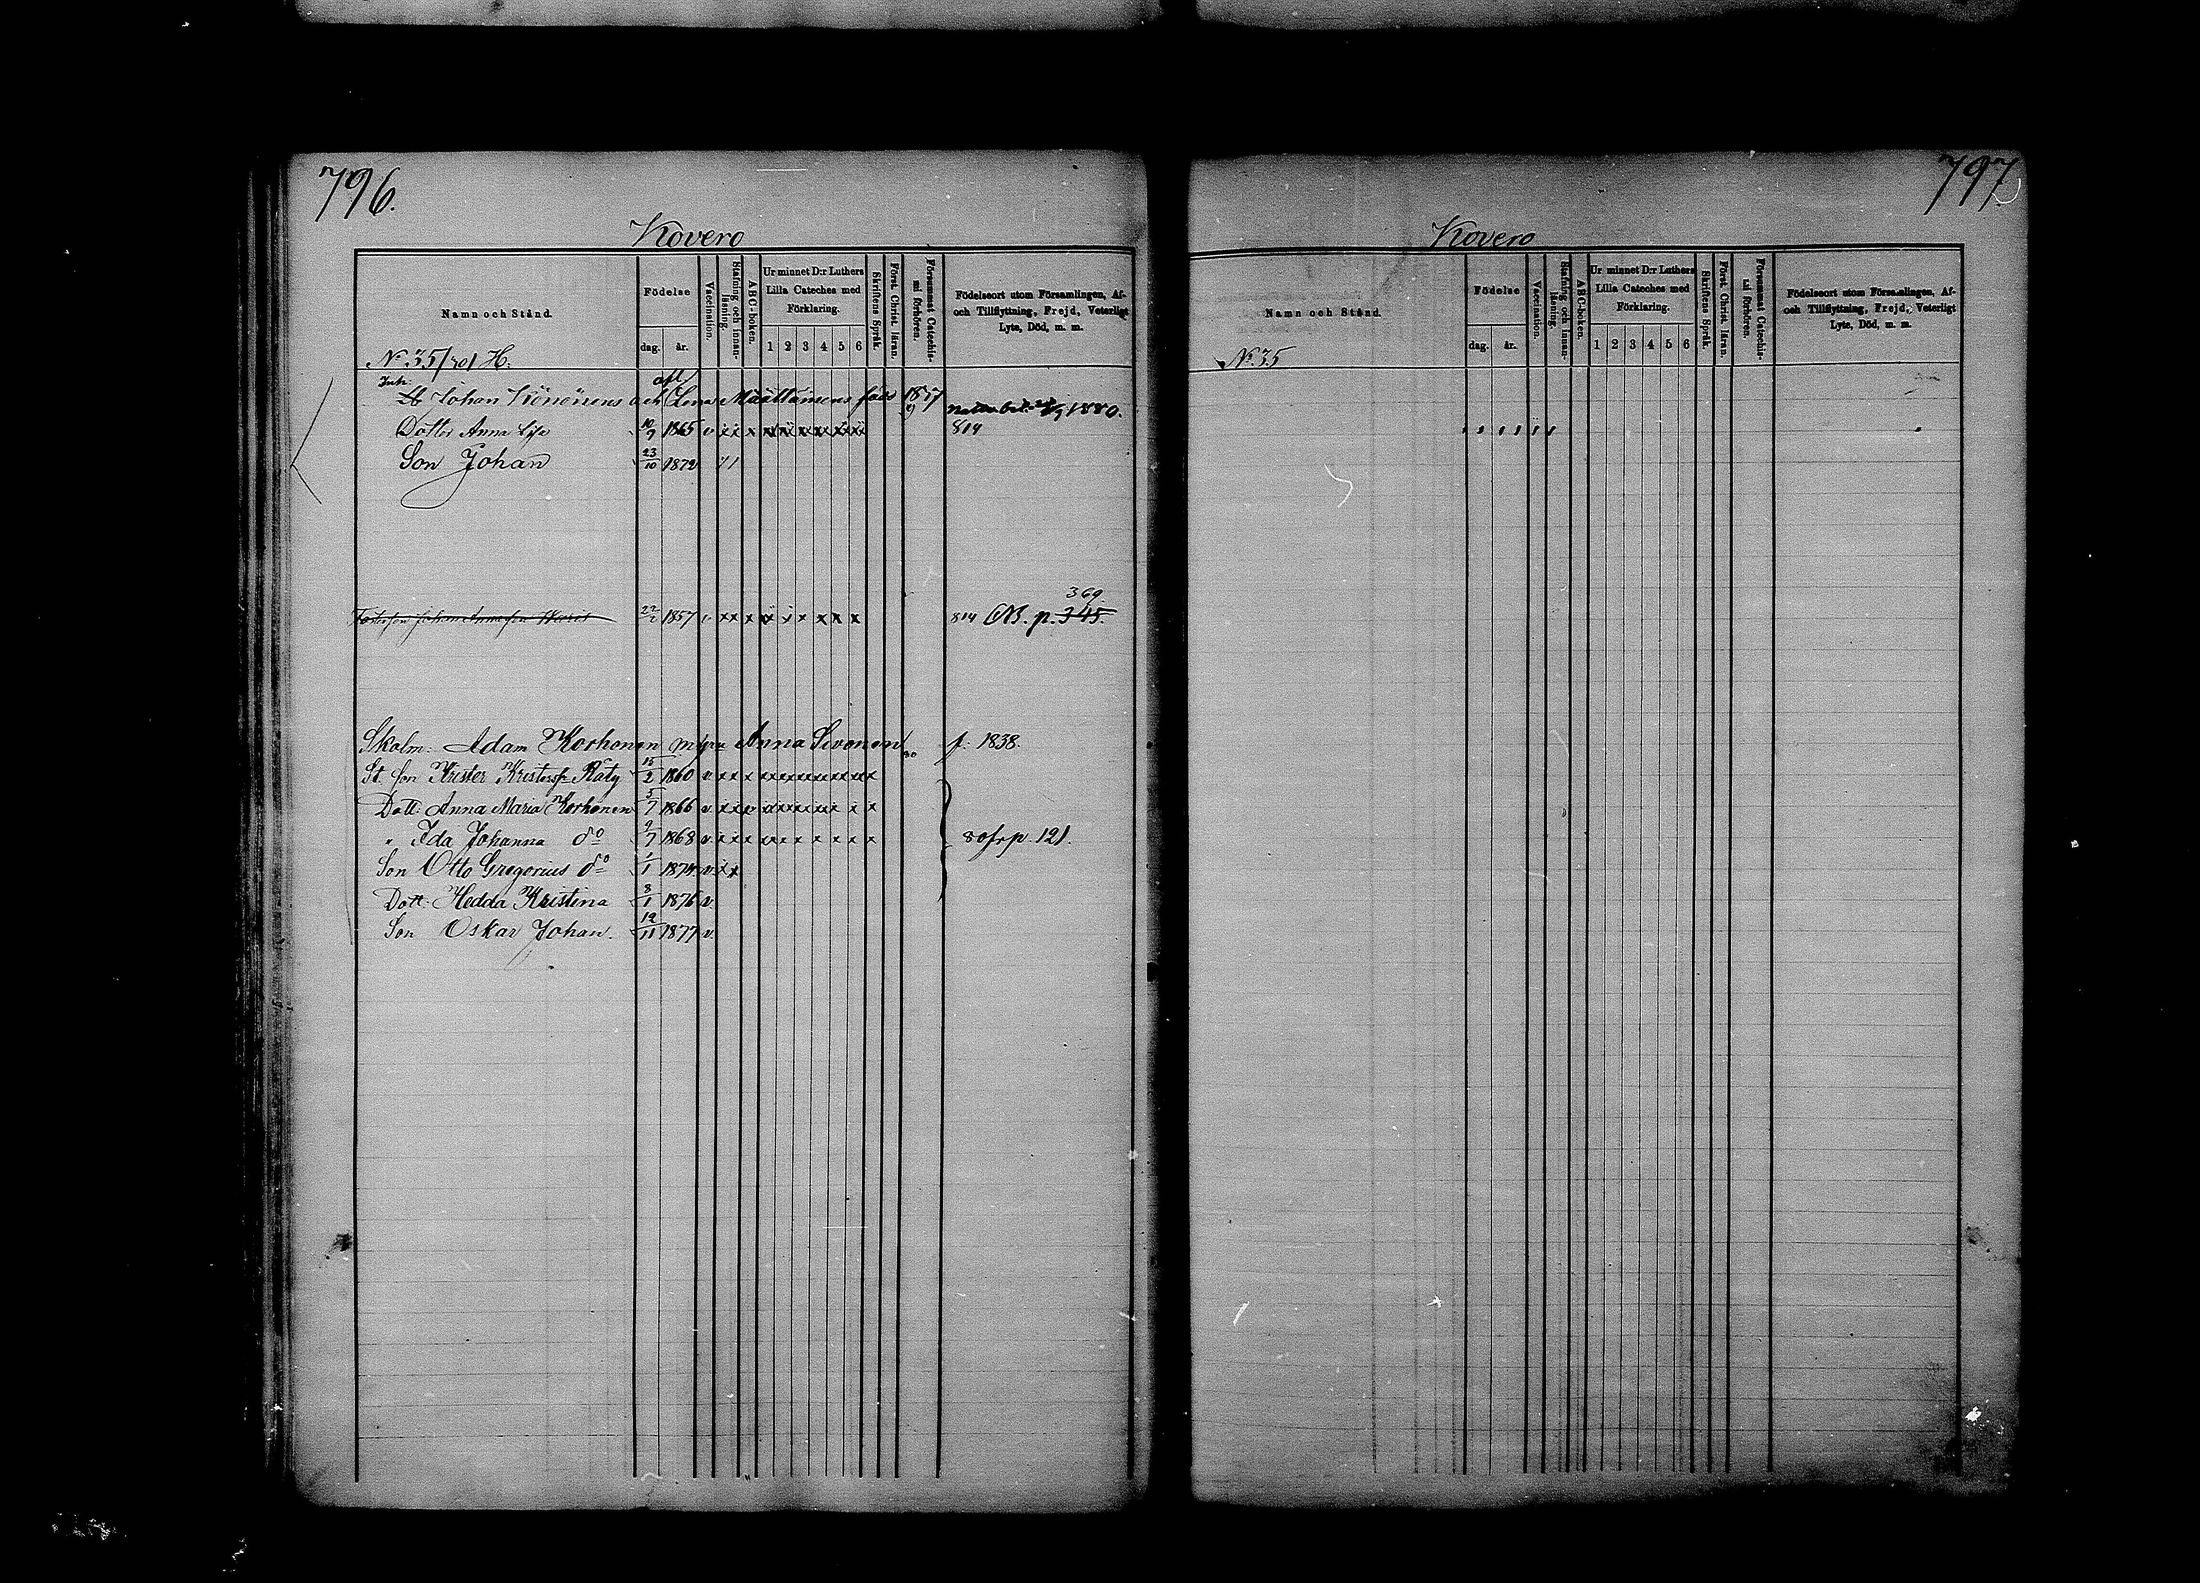 796.
Kovero
Namn och Stånd.
Födelse
dag.
år.
Vaccination.
Stafning och innan-
läsning.
A B C-boken.
Ur minnet D:r Luthers
Lilla Cateches med
Förklaring.
1 2 3 4 5 6
Skriftens Språk.
Först. Christ. läran.
Försummat Catechis-
mi förhören.
Födelseort utom Församlingen, Af-
och Tillflyttning, Frejd, Veterligt
Lyte, Död, m. m.
No 35/701 H.
Inh:
afl/
Johan och Lena Määttänens 1880.
Dotter Anna Lisa 10/9 1865 v 814
Son Johan 23/10 1872
369
22/2 1857 v 814 CB. p. 345.
Skolm: Adam Korhonen m/fru Anna Sivonen f. 1838.
St son Krister Kristersp Räty 15/2 1860 v x x x
Dott: Anna Maria Korhonen 5/7 1866 v x x
" Ida Johanna do 9/7 1868 v x x x 80 fr p. 121.
Son Otto Gregorius do 1/1 1874 v x x
Dott: Hedda Kristina 8/1 1876 v.
Son Oskar Johan. 19/11 1877 v.
797
Kovero
Namn och Stånd.
Födelse
dag.
år.
Vaccination.
Stafning och innan-
läsning.
A B C-boken.
Ur minnet D:r Luthers
Lilla Cateches med
Förklaring.
1 2 3 4 5 6
Skriftens Språk.
Först. Christ. läran.
Försummat Catechis-
mi förhören.
Födelseort utom Församlingen, Af-
och Tillflyttning, Frejd, Veterligt
Lyte, Död, m. m.
No 35